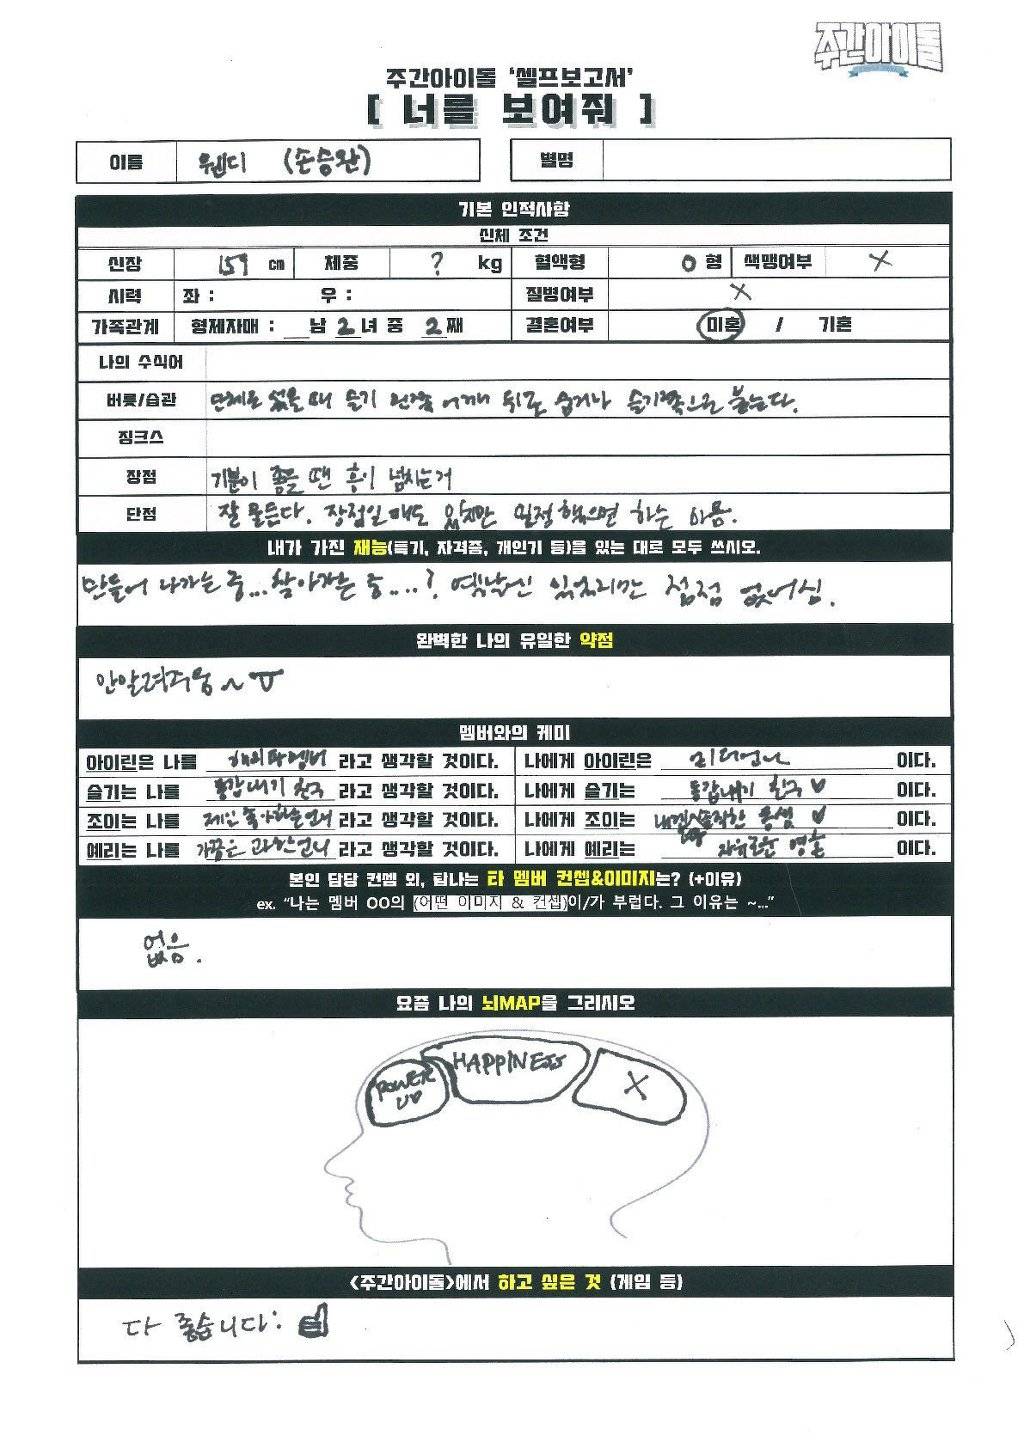 주간아이돌
주간아이돌 '셀프보고서'
[ 너를 보여줘 ]
이름 웬디 (손승완) 별명
기본 인적사항
신체 조건
신장 159 cm 체중 ? kg 혈액형 O 형 색맹여부 X
시력 좌 : 우 : 질병여부 X
가족관계 형제자매 : __남 2 녀 중 2 째 결혼여부 미혼 / 기혼
나의 수식어
버릇/습관 단체로 섰을 때 슬기 왼쪽 어깨 뒤로 숨거나 슬기쪽으로 붙는다.
징크스
장점 기분이 좋을 땐 흥이 넘치는거
단점 잘 물든다. 장점일 때도 있지만 일정 하는 아픔.
내가 가진 재능(특기, 자격증, 개인기 등)을 있는 대로 모두 쓰시오.
만들어 나가는 중... 찾아가는 중....? 옛날엔 있었지만 점점 없어짐.
완벽한 나의 유일한 약점
안알려주웡~ㅠ
멤버와의 케미
아이린은 나를 해외파멤버 라고 생각할 것이다. 나에게 아이린은 리더언니 이다.
슬기는 나를 동갑내기 친구 라고 생각할 것이다. 나에게 슬기는 동갑내기 친구 ♥ 이다.
조이는 나를 제일 좋아하는언니 라고 생각할 것이다. 나에게 조이는 솔직한 동생 ♥ 이다.
예리는 나를 가끔은 귀찮은언니 라고 생각할 것이다. 나에게 예리는 자유로운 영혼 이다.
본인 담당 컨셉 외, 탐나는 타 멤버 컨셉&이미지는? (+이유)
ex. "나는 멤버 OO의 (어떤 이미지 & 컨셉)이/가 부럽다. 그 이유는 ~..."
없음.
요즘 나의 뇌MAP을 그리시오
POWER UP
HAPPINESS
X
<주간아이돌>에서 하고 싶은 것 (게임 등)
다 좋습니다: